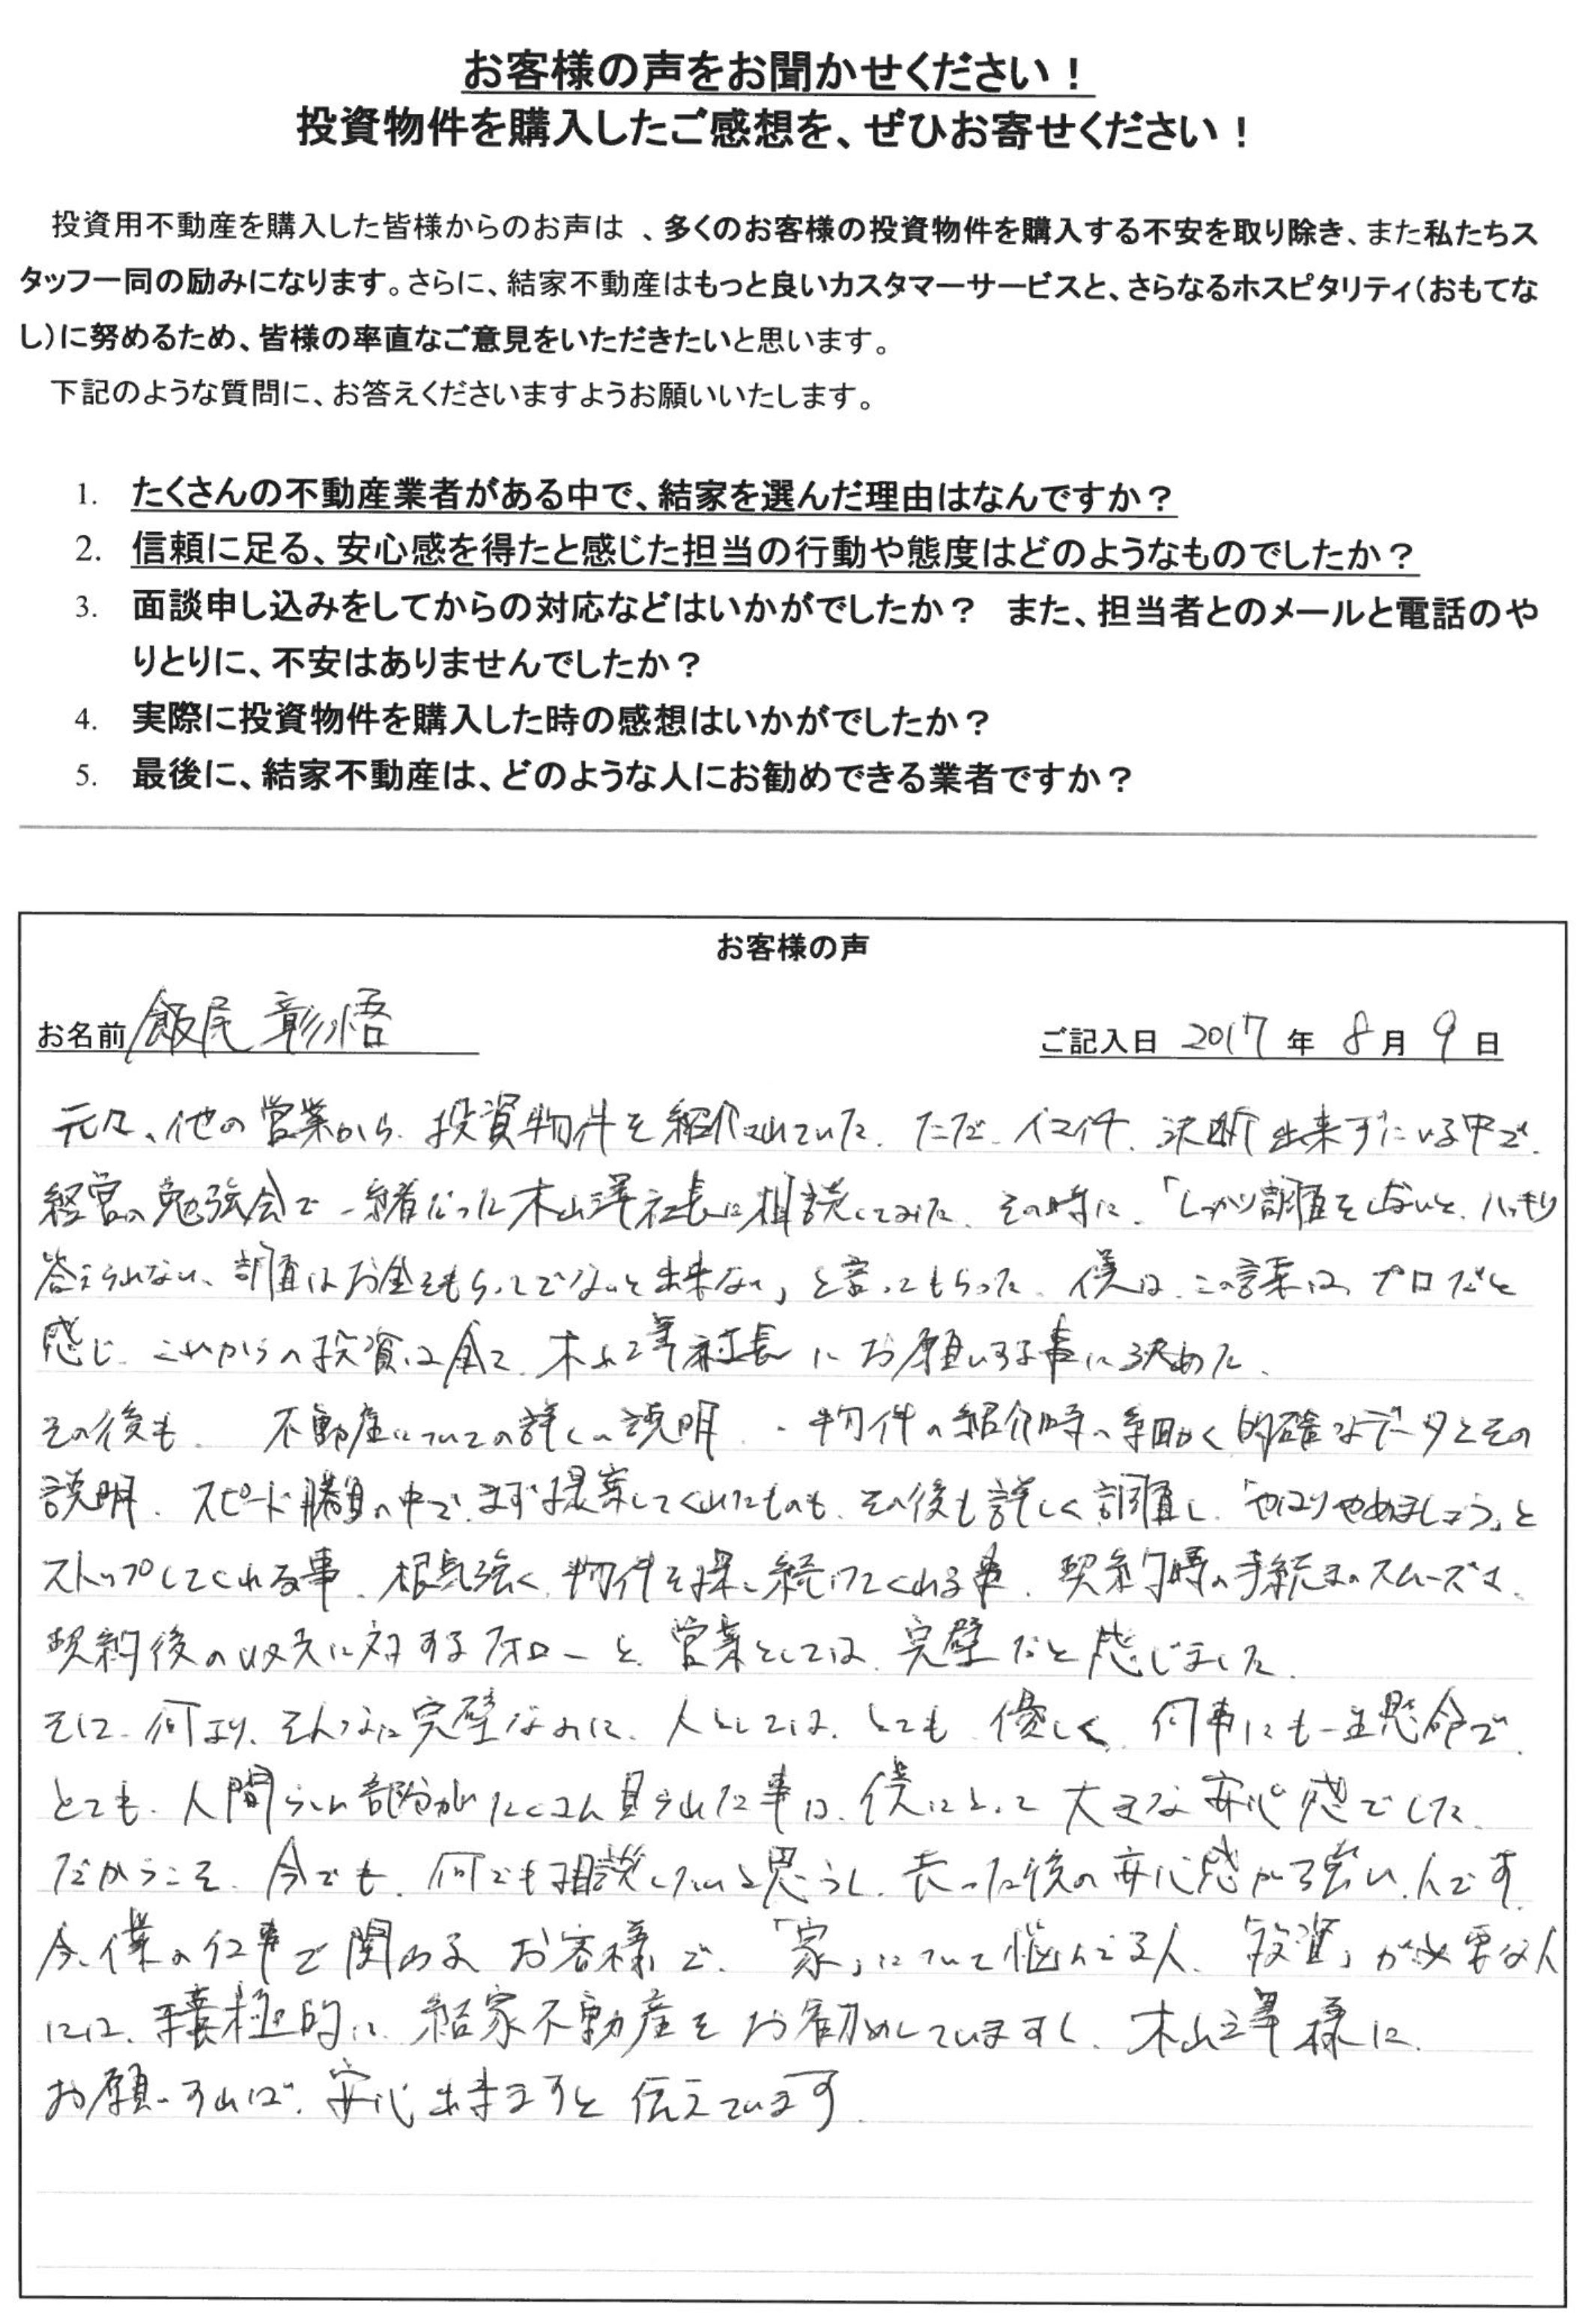 お客様の声をお聞かせください！
投資物件を購入したご感想を、ぜひお寄せください！
投資用不動産を購入した皆様からのお声は 、多くのお客様の投資物件を購入する不安を取り除き、また私たちス
タッフ一同の励みになります。さらに、結家不動産はもっと良いカスタマーサービスと、さらなるホスピタリティ（おもてな
し）に努めるため、皆様の率直なご意見をいただきたいと思います。
下記のような質問に、お答えくださいますようお願いいたします。
1. たくさんの不動産業者がある中で、結家を選んだ理由はなんですか？
2. 信頼に足る、安心感を得たと感じた担当の行動や態度はどのようなものでしたか？
3. 面談申し込みをしてからの対応などはいかがでしたか？ また、担当者とのメールと電話のや
りとりに、不安はありませんでしたか？
4. 実際に投資物件を購入した時の感想はいかがでしたか？
5. 最後に、結家不動産は、どのような人にお勧めできる業者ですか？
お客様の声
お名前 飯尾 彰悟
ご記入日 2017 年 8 月 9 日
元々、他の営業から、投資物件を紹介されていた。ただ、イマイチ、決断出来ずにいる中で、
経営の勉強会で一緒だった木山澤社長に相談してみた。その時に、「しっかり調査をしないと、ハッキリ
答えられない、調査はお金をもらってでないと出来ない」と言ってもらった。僕は、この言葉に、プロだと
感じ、これからの投資は全て、木山澤社長にお願いする事に決めた。
その後も、不動産についての詳しい説明、・物件の紹介時の細かく的確なデータとその
説明、スピード勝負の中で、まず提案してくれたものも、その後も詳しく調査し、「やはりやめましょう」と
ストップしてくれる事、根気強く、物件を探し続けてくれる事、契約時の手続きのスムーズさ、
契約後の収支に対するフォローと、営業としては、完璧だと感じました。
そして、何より、そんなに完璧なのに、人としては、とても、優しく、何事にも一生懸命で、
とても、人間らしい部分がたくさん見られた事は、僕にとって大きな安心感でした。
だからこそ、今でも、何でも相談したいと思うし、買った後の安心感が強いんです。
今、僕の仕事で関わるお客様で、「家」について悩んでる人、「投資」が必要な人
には、積極的に、結家不動産をお勧めしていますし、木山澤様に
お願いすれば、安心出来ますと伝えています。